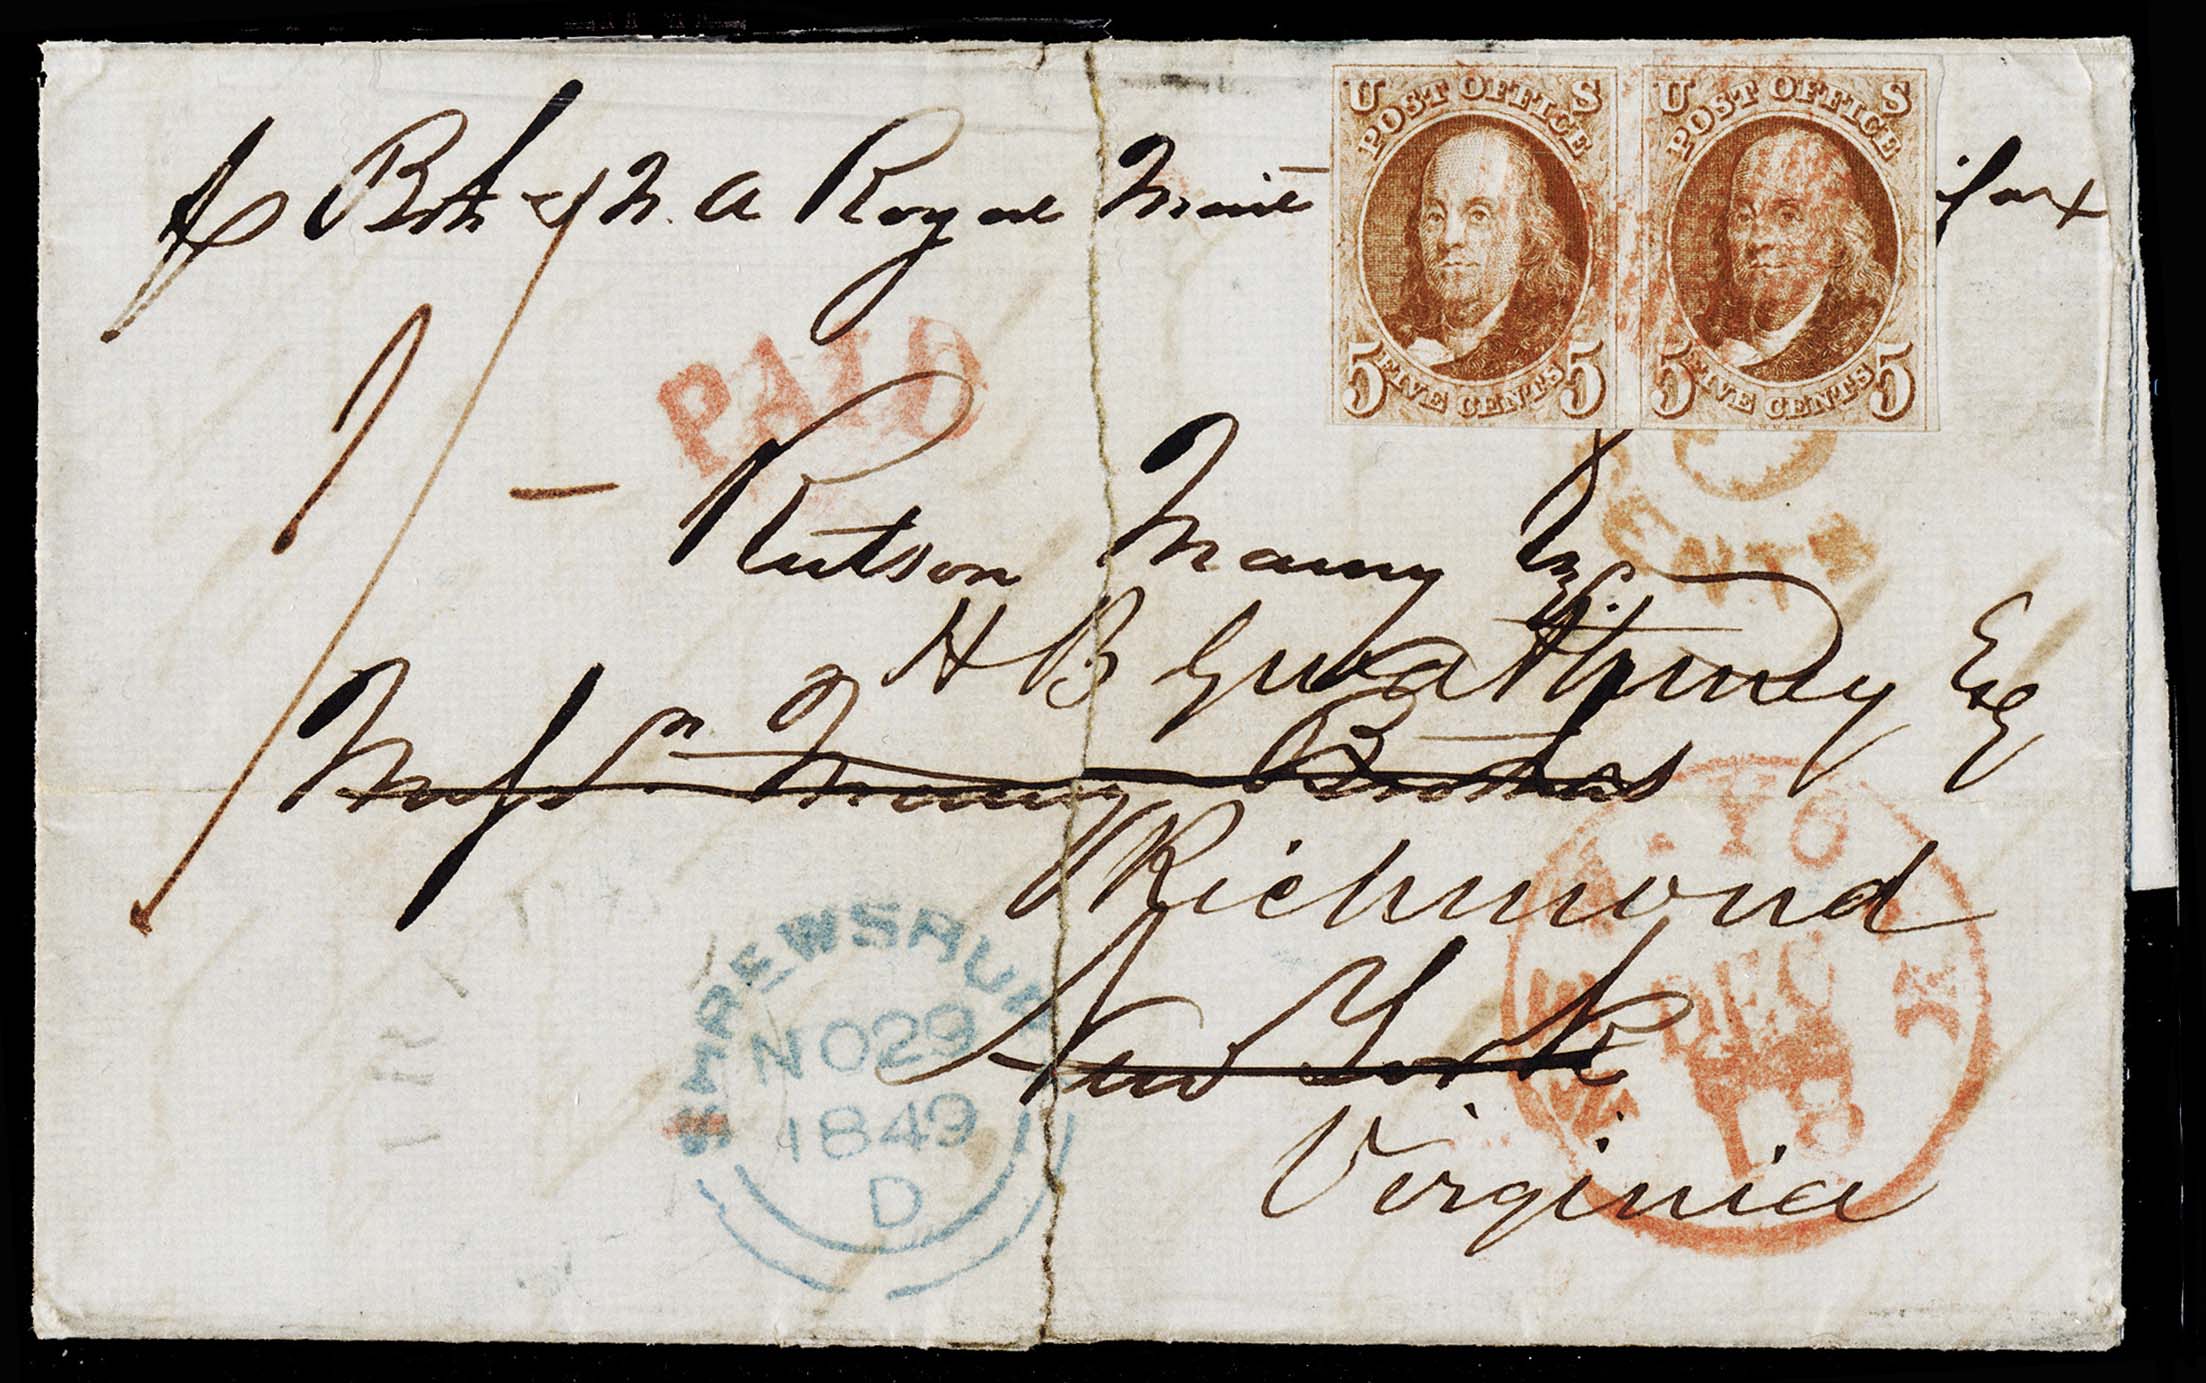 U S POST OFFICE 5 FIVE CENTS 5
U S POST OFFICE 5 FIVE CENTS 5
Brth & N. A Royal Mail ifax
PAID
1/-
CENTS
Rutson Maury Esq.
H B Gwathmey Esq
Messrs Maury Brothers
Richmond
New York
Virginia
SHREWSBURY
NO 29
1849
D
NEW YORK
DEC
18